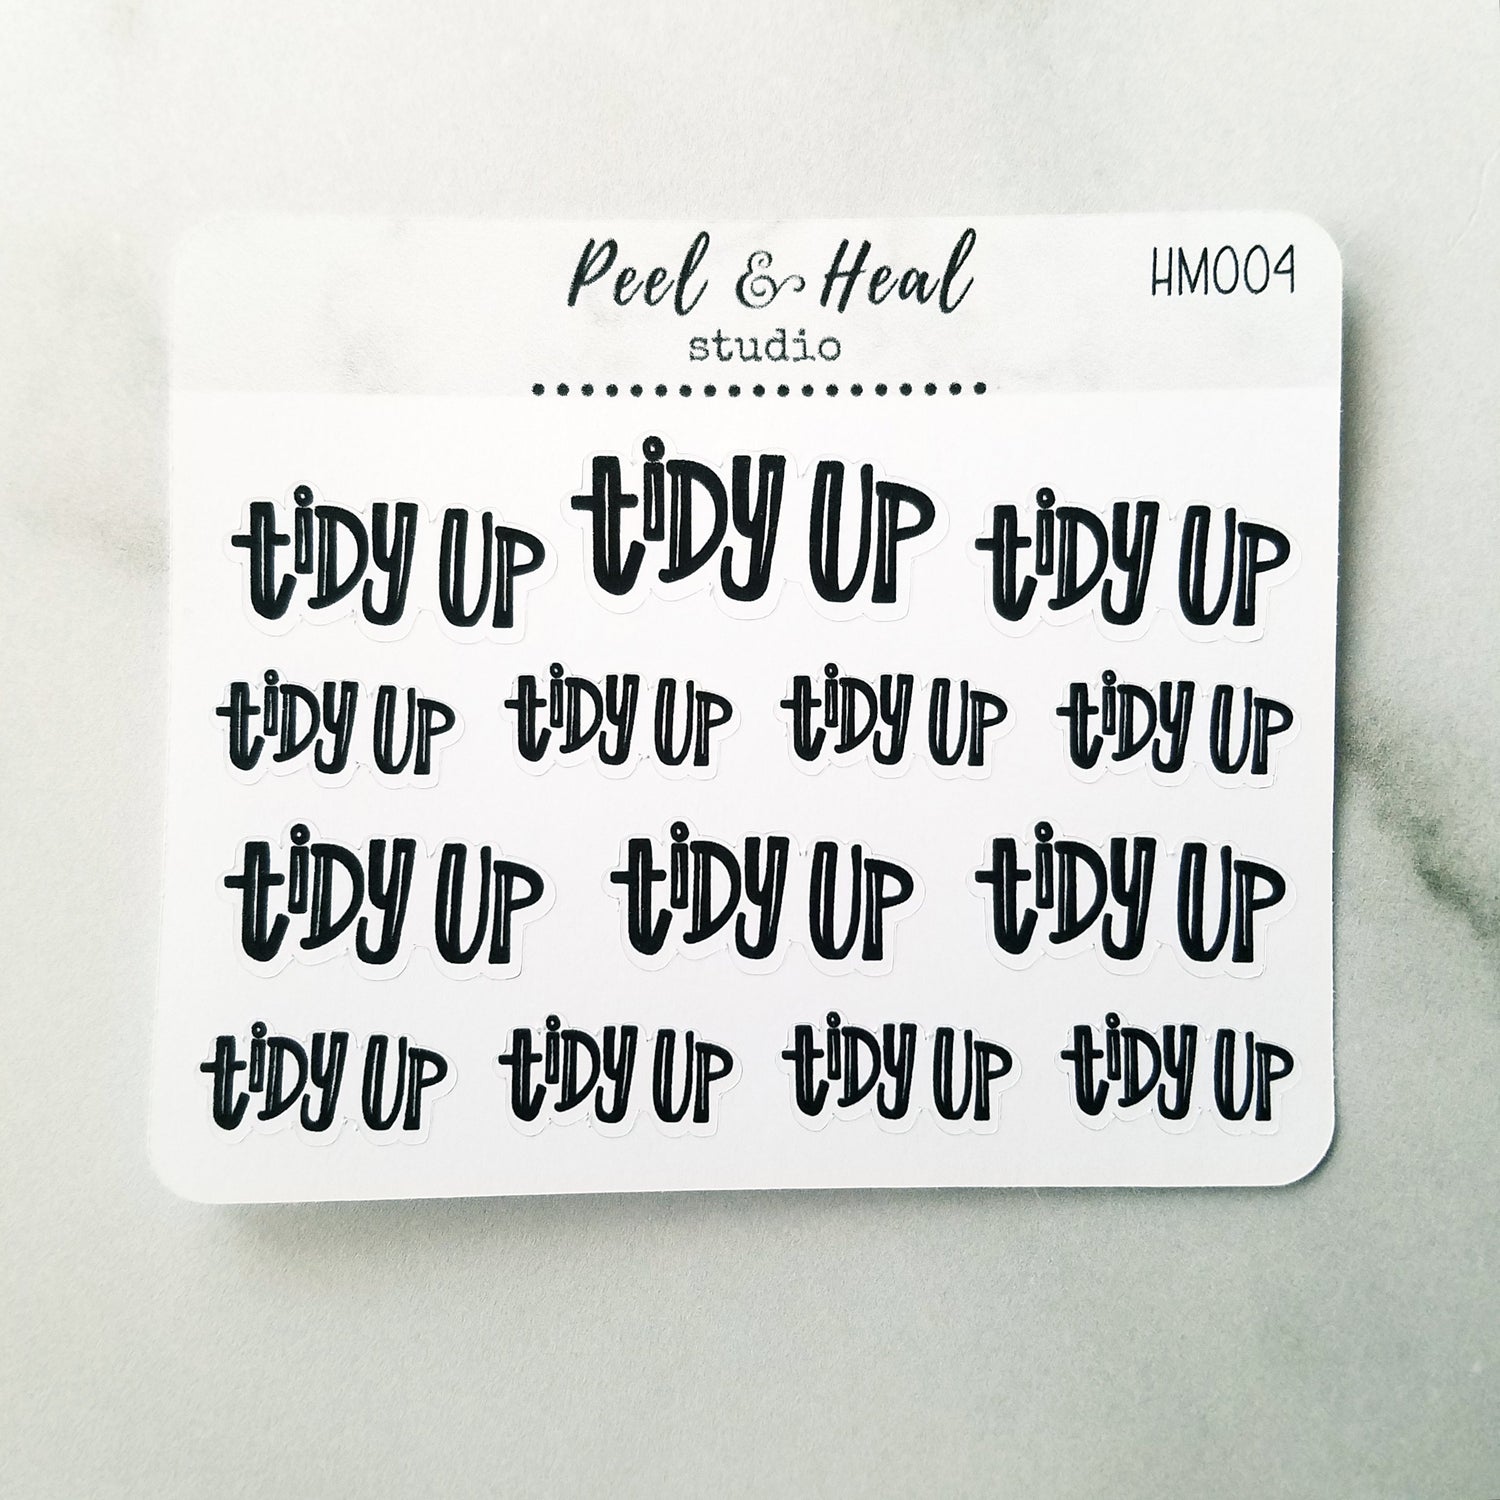 Peel & Heal
HM004
studio
tidy up tidy up tidy up
tidy up tidy up tidy up tidy up
tidy up tidy up tidy up
tidy up tidy up tidy up tidy up